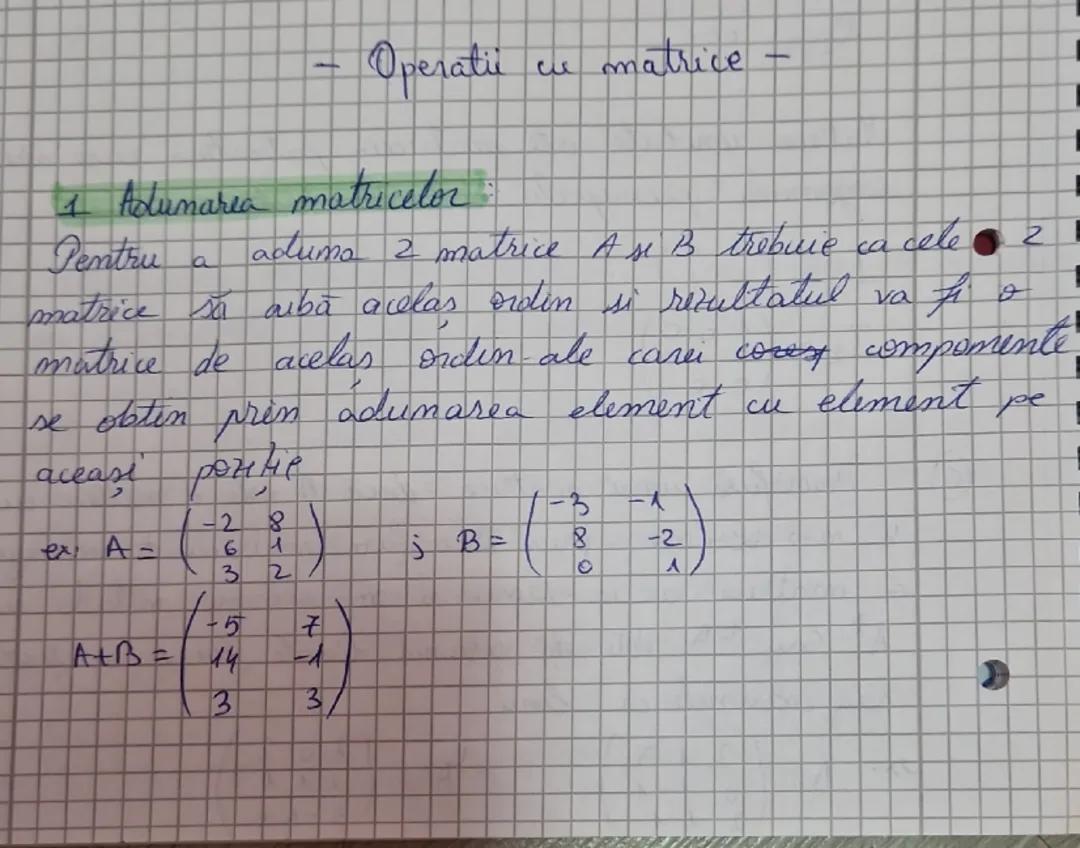 - Operatii cu matrice -
1 Adunarea matricelor:
Pentru a aduna 2 matrice A si B trebuie ca cele 2
matrice să aibă acelaș ordin si rezultatul va fi o
matrice de acelaș ordin ale carei componente
se obtin prin adunarea element cu element pe
aceași poziție
ex: A = (-2 8
6 1
3 2) ; B = (-3 -1
8 -2
0 1)
A+B = (-5 7
14 -1
3 3)